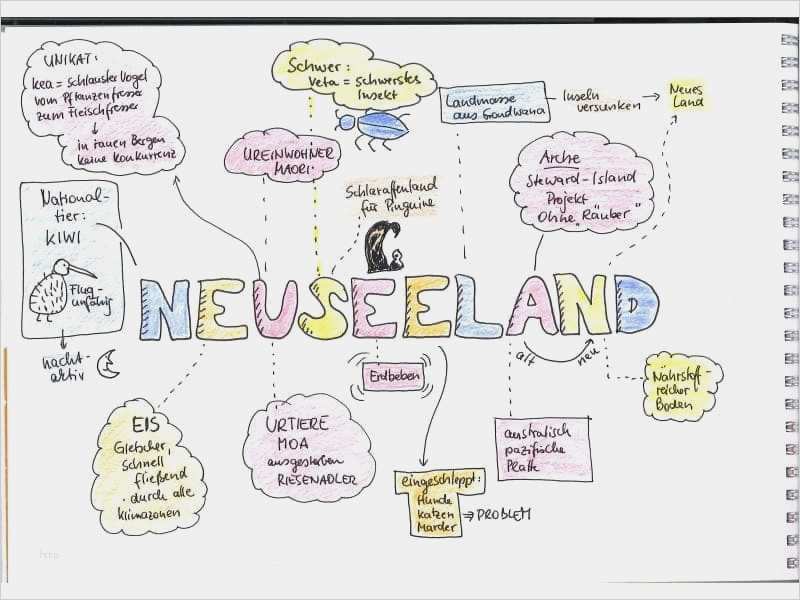 UNIKAT:
kea = schlauster Vogel
vom Pflanzenfresser
zum Fleischfresser
in rauen Bergen
keine Konkurrenz
Schwer:
Veta = schwerstes
Insekt
Landmasse
aus Gondwana
Inseln
versunken
Neues
Land
UREINWOHNER
MAORI
Arche
Steward-Island
Projekt
Ohne „Räuber“
National-
tier:
KIWI
Flug-
unfähig
nacht-
aktiv
Schlaraffenland
für Pinguine
NEUSEELAND
alt
neu
Erdbeben
Nährstoff-
reicher
Boden
EIS
Gletscher,
schnell
fließend
durch alle
Klimazonen
URTIERE
MOA
ausgestorben
RIESENADLER
australisch
pazifische
Platte
eingeschleppt:
Hunde
Katzen
Marder
⇒ PROBLEM